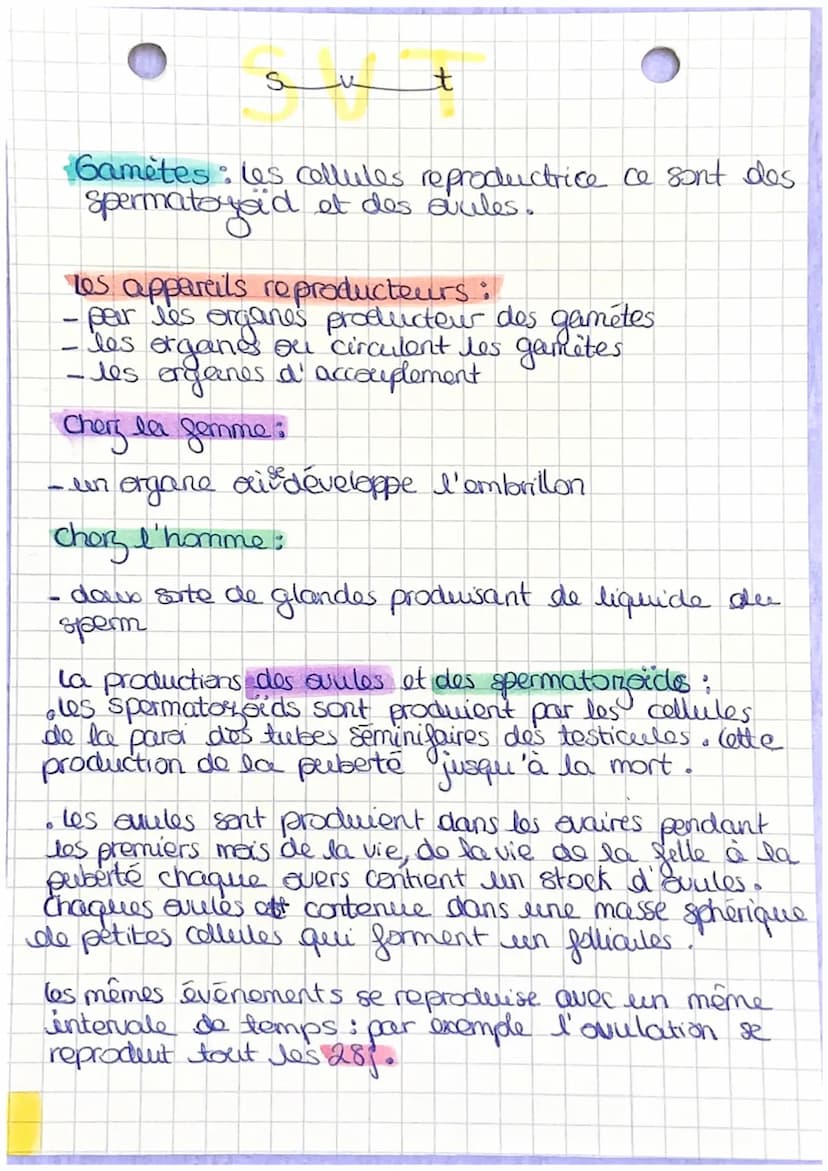 SVT
svt
Gamètes : Les cellules reproductrice ce sont des
spermatozoïd et des ovules.
Les appareils reproducteurs :
- par les organes producteur des gamètes
- les organes ou circulent les gamètes
- les organes d'accouplement
Chez la femme :
- un organe où se développe l'embrillon
Chez l'homme :
- deux sorte de glandes produisant de liquide du
sperm
La productions des ovules et des spermatozoïds :
. les spermatozoïds sont produient par les cellules
de la paroi des tubes séminifaires des testicules. Cette
production de la puberté jusqu'à la mort.
. Les ovules sont produient dans les ovaires pendant
les premiers mois de la vie, de la vie de la felle à la
puberté chaque overs contient un stock d'ovules.
Chaques ovules contenue dans une masse sphérique
de petites cellules qui forment un follicules.
Les mêmes événements se reproduise avec un même
intervale de temps : par exemple l'ovulation se
reproduit tout les 28j.